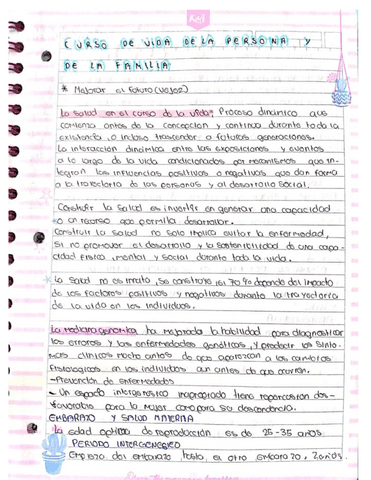 CURSO DE VIDA DE LA PERSONA Y
DE LA FAMILIA
* Mejorar el futuro (vejez)
La salud en el curso de la vida: Proceso dinámico que
comienza antes de la concepcion y continua durante toda la
existencia o incluso trascender a futuras generaciones.
La interacción dinámica entre las exposiciones y eventos
a lo largo de la vida condicionados por mecanismos que in-
tegran las influencias positivas o negativas que dan forma
a la trayectoria de las personas y al desarrollo social.
Construir la salud es invertir en generar una capacidad
o un recurso que permita desarrollar.
Construir la salud no solo implica evitar la enfermedad,
si no promover el desarrollo y la sostenibilidad de una capa-
cidad física, mental y social durante toda la vida.
La salud no es innata, se construye, 70% depende del impacto
de los factores positivos y negativos durante la trayectoria
de la vida en los individuos.
La medicina genómica ha mejorado la habilidad para diagnosticar
los errores y las enfermedades genéticas, y predecir los sinto-
mas clinicos mucho antes de que aparezcan a los cambios
fisiologicos en los individuos aun antes de que ocurran.
-Prevención de enfermedades
- Un espacio intergenésico inapropiado tiene repercusion des-
favorable para la mujer como para su descendencia.
EMBARAZO Y SALUD MATERNA
La edad optima de reproducción es de 25-35 años.
PERIODO INTERGENESICO
Empieza del embarazo hasta el otro embarazo. 2 años.